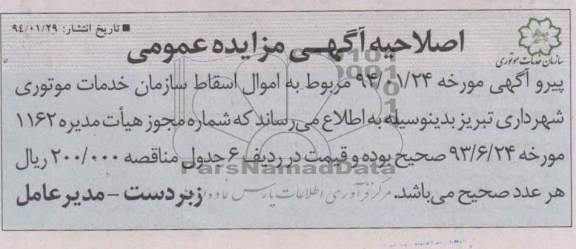 تاریخ انتشار: ۹۴/۰۱/۲۹
سازمان خدمات موتوری
اصلاحیه آگهی مزایده عمومی
پیرو آگهی مورخه ۹۴/۰۱/۲۴ مربوط به اموال اسقاط سازمان خدمات موتوری
شهرداری تبریز بدینوسیله به اطلاع می‌رساند که شماره مجوز هیأت مدیره ۱۱۶۲
مورخه ۹۳/۶/۲۴ صحیح بوده و قیمت در ردیف ۶ جدول مناقصه ۲۰۰/۰۰۰ ریال
ParsNamadData
هر عدد صحیح می‌باشد. مرکز فرآوری اطلاعات پارس نماد داده‌ها زبردست - مدیرعامل